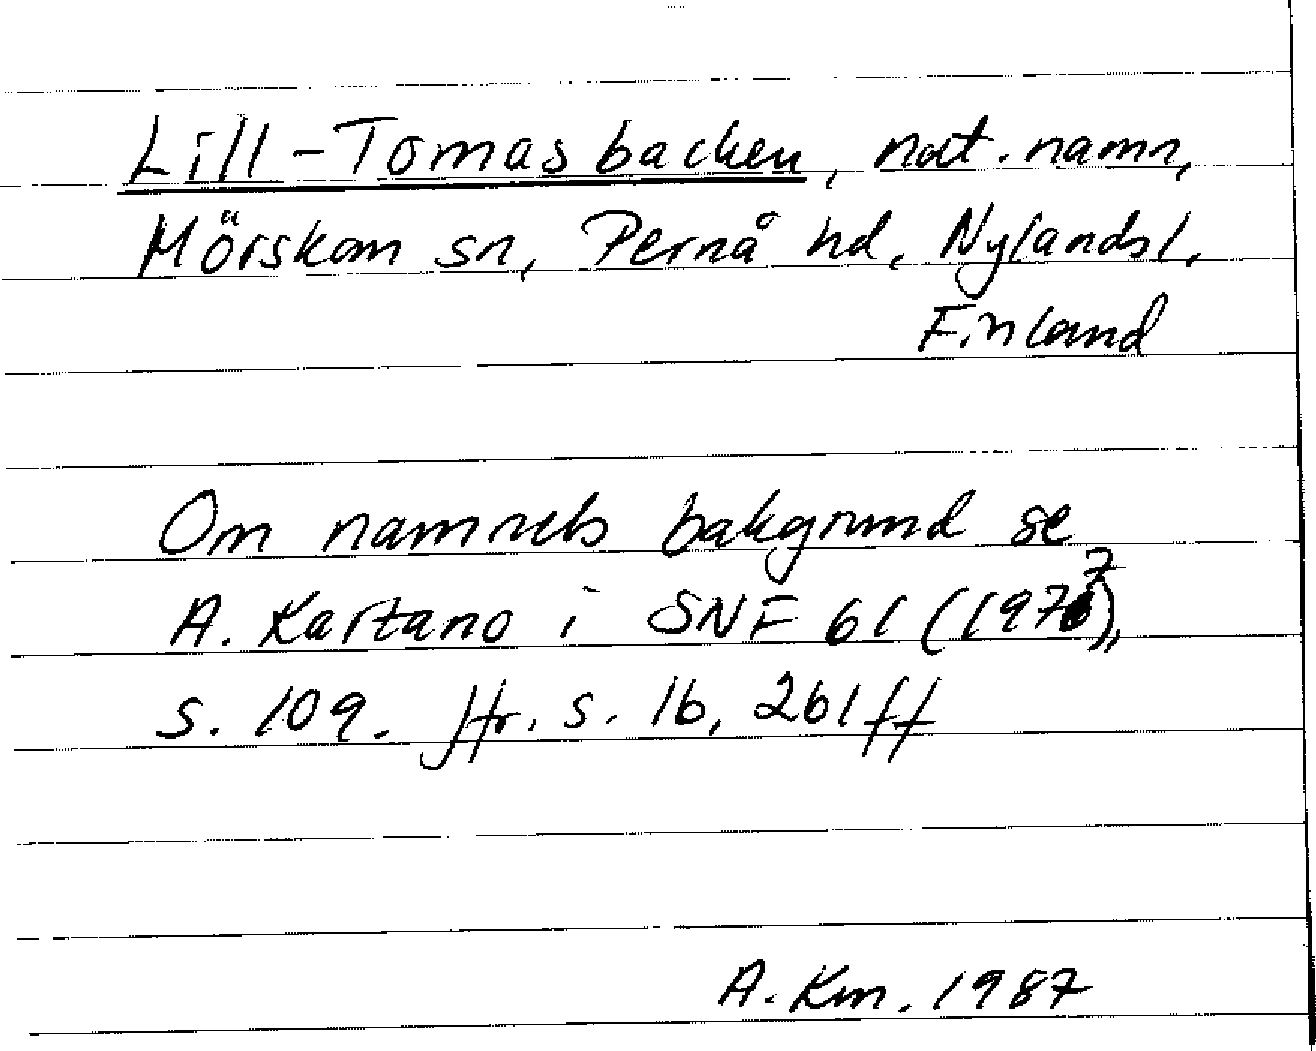 Lill-Tomasbacken, nat. namn,
Mörskom sn, Pernå hd, Nylands l.
Finland
Om namnets bakgrund se
A. Kartano i SNF 61 (1977),
s. 109. Jfr. s. 16, 261 ff
A. Km. 1987